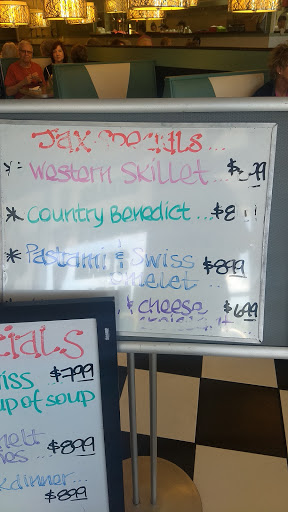 Jax Specials...
Western Skillet...
* Country Benedict... $8
* Pastami & Swiss $8.99
omelet...
& cheese $6.99
cials
iss $7.99
up of soup
melt $8.99
dinner... $8.99